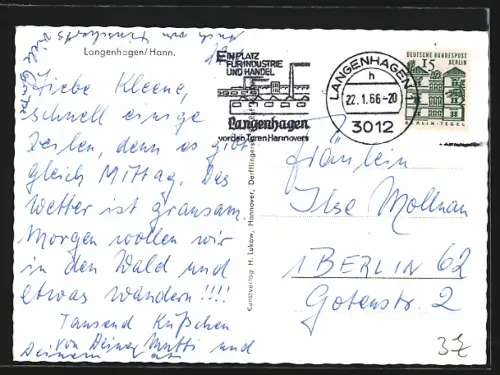 Langenhagen/Hann.
Liebe Kleene,
schnell einige
Zeilen, denn es gibt
gleich Mittag. Das
Wetter ist grausam.
Morgen wollen wir
in den Wald und
etwas wandern!!!!
Tausend Küßchen
von Deiner Mutti und
Deinem
Auch von
viele
EIN PLATZ
FÜR INDUSTRIE
UND HANDEL
Langenhagen
vor den Toren Hannovers
LANGENHAGEN
h
22.1.66-20
3012
DEUTSCHE BUNDESPOST
BERLIN
15
BERLIN-TEGEL
Kunstverlag H. Lukow, Hannover, Derfflingerstr.
Fräulein
Ilse Mollnau
1 BERLIN 62
Gotenstr. 2